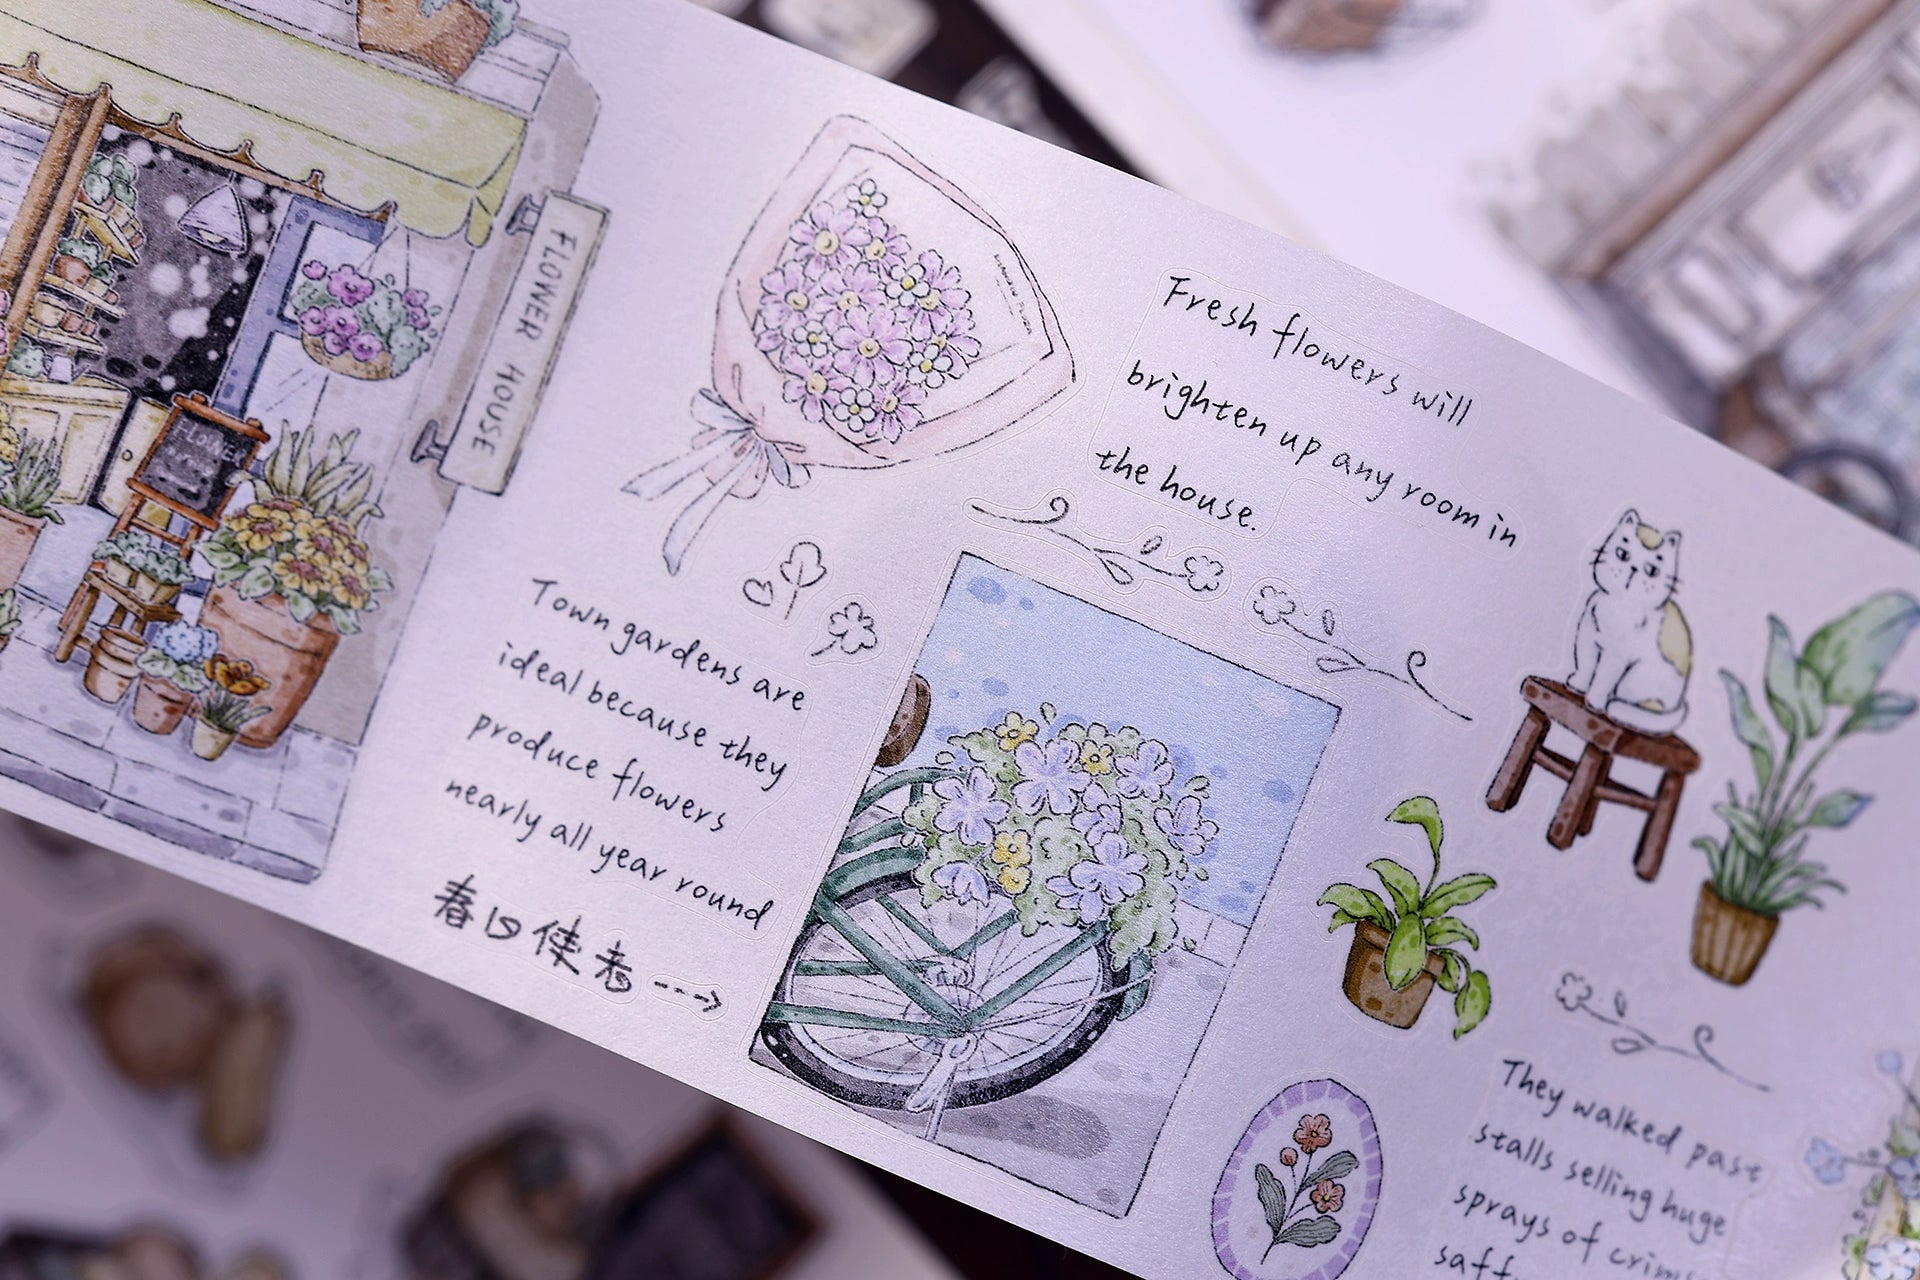 FLOWER HOUSE
FLOWER
Fresh flowers will
brighten up any room in
the house.
Town gardens are
ideal because they
produce flowers
nearly all year round
春日使者
They walked past
stalls selling huge
sprays of